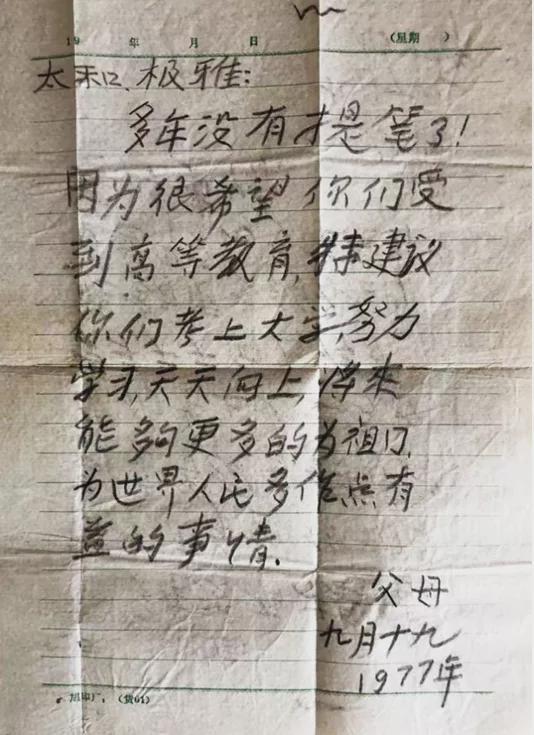 19 年 月 日 (星期 )
太和、极雅:
多年没有提笔了!
因为很希望你们受
到高等教育,特建议
你们考上大学,努力
学习,天天向上,将来
能够更多的为祖国,
为世界人民多作点有
益的事情.
父母
九月十九
1977年